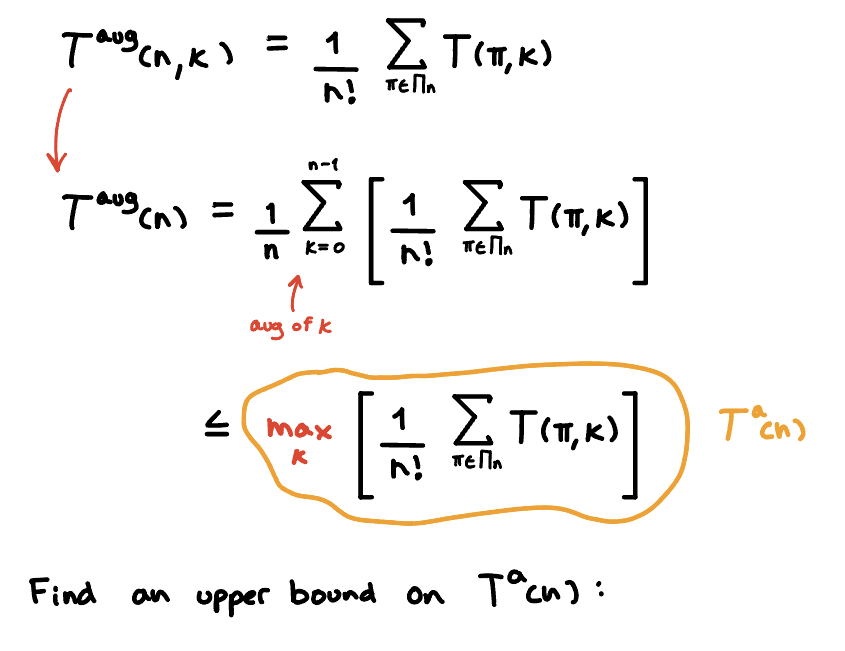 T^avg(n,k) = 1/n! ∑_{π∈Π_n} T(π,k)
T^avg(n) = 1/n ∑_{k=0}^{n-1} [ 1/n! ∑_{π∈Π_n} T(π,k) ]
avg of k
≤ max_k [ 1/n! ∑_{π∈Π_n} T(π,k) ] T^a(n)
Find an upper bound on T^a(n):